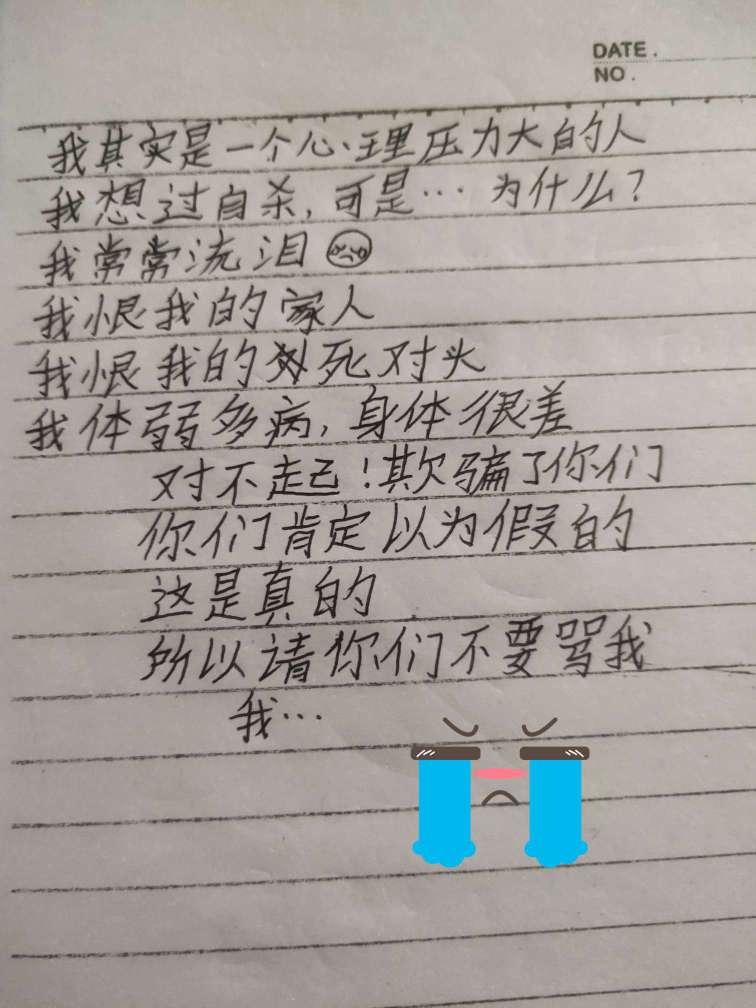 DATE.
NO.
我其实是一个心理压力大的人
我想过自杀，可是… 为什么？
我常常流泪
我恨我的家人
我恨我的死对头
我体弱多病，身体很差
对不起！欺骗了你们
你们肯定以为假的
这是真的
所以请你们不要骂我
我…